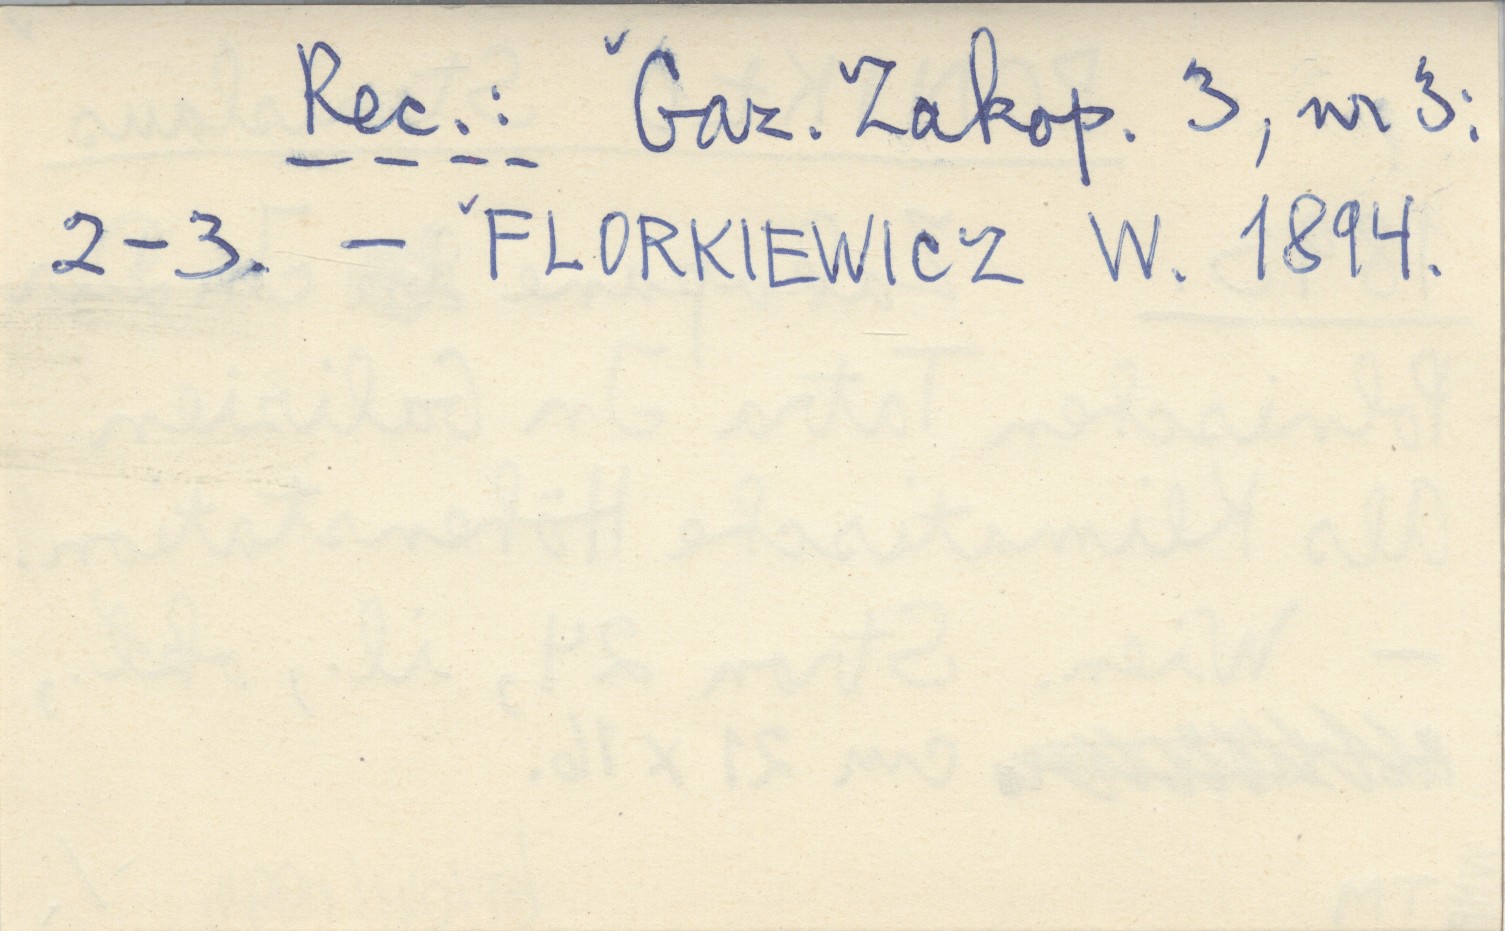 Rec.: Gaz. Zakop. 3, nr 3:
2-3. - FLORKIEWICZ W. 1894.